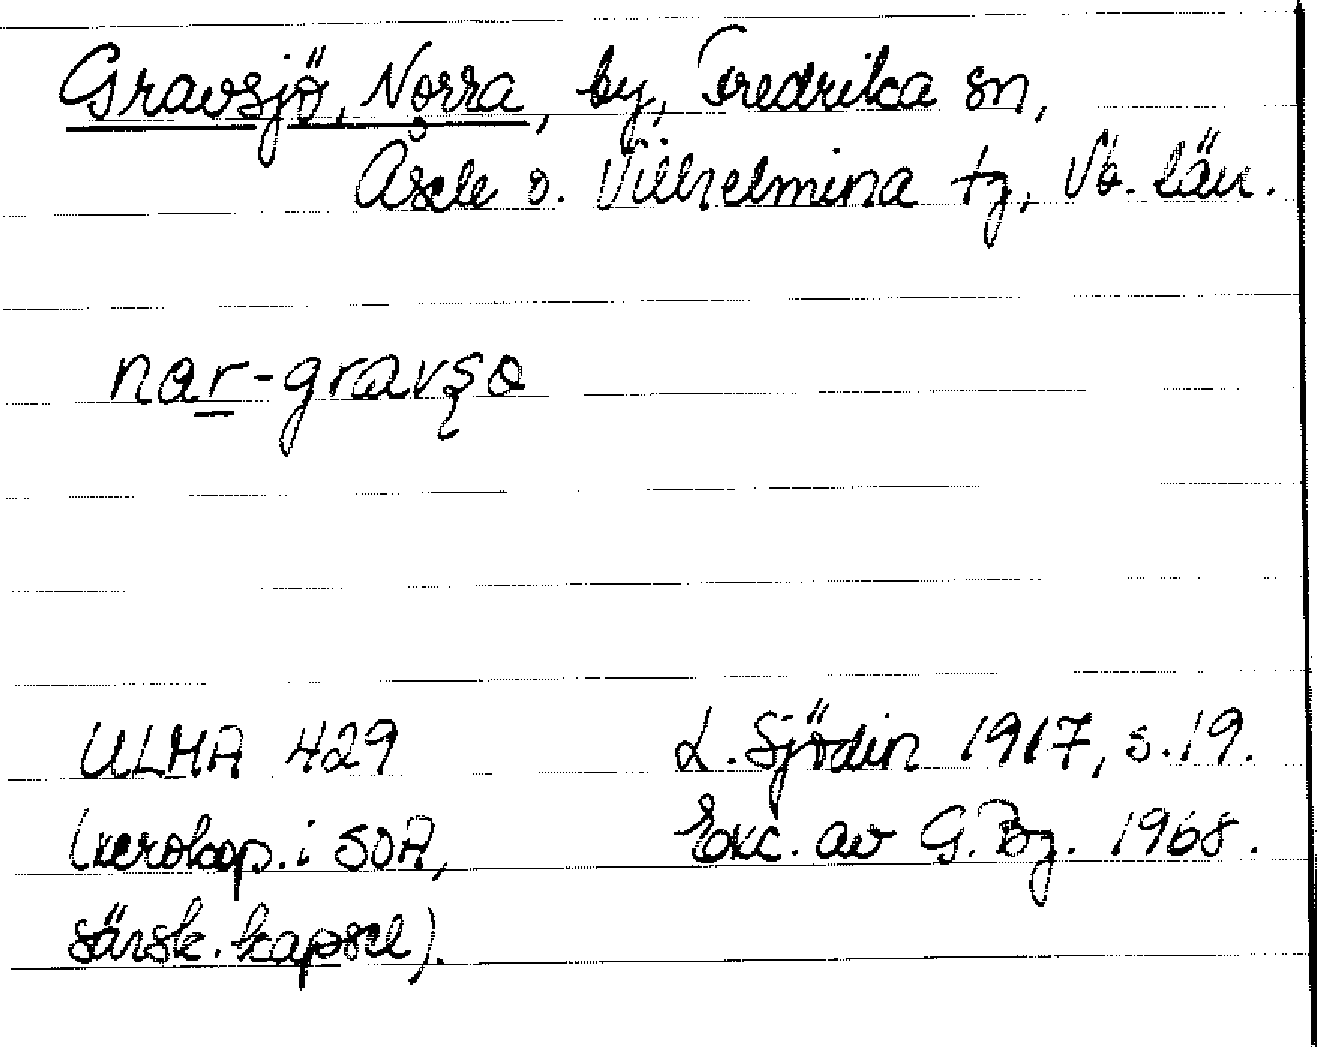 Gravsjö, Norra, by, Fredrika sn,
Åsele o. Vilhelmina tg, Vb. län.
nar-gravşo
ULMA 429
(xerokop. i SOA,
särsk. kapsel).
L. Sjödin 1917, s. 19.
Exc. av G. Bg. 1968.